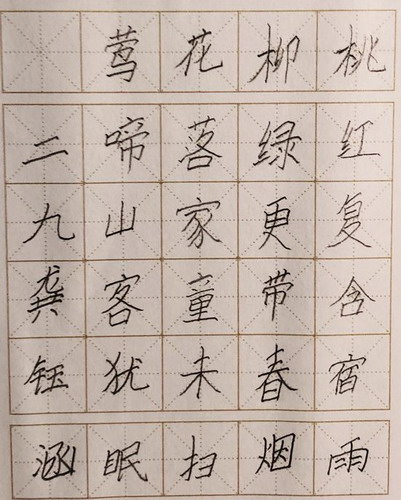 桃红复含宿雨
柳绿更带春烟
花落家童未扫
莺啼山客犹眠
二九龚钰涵